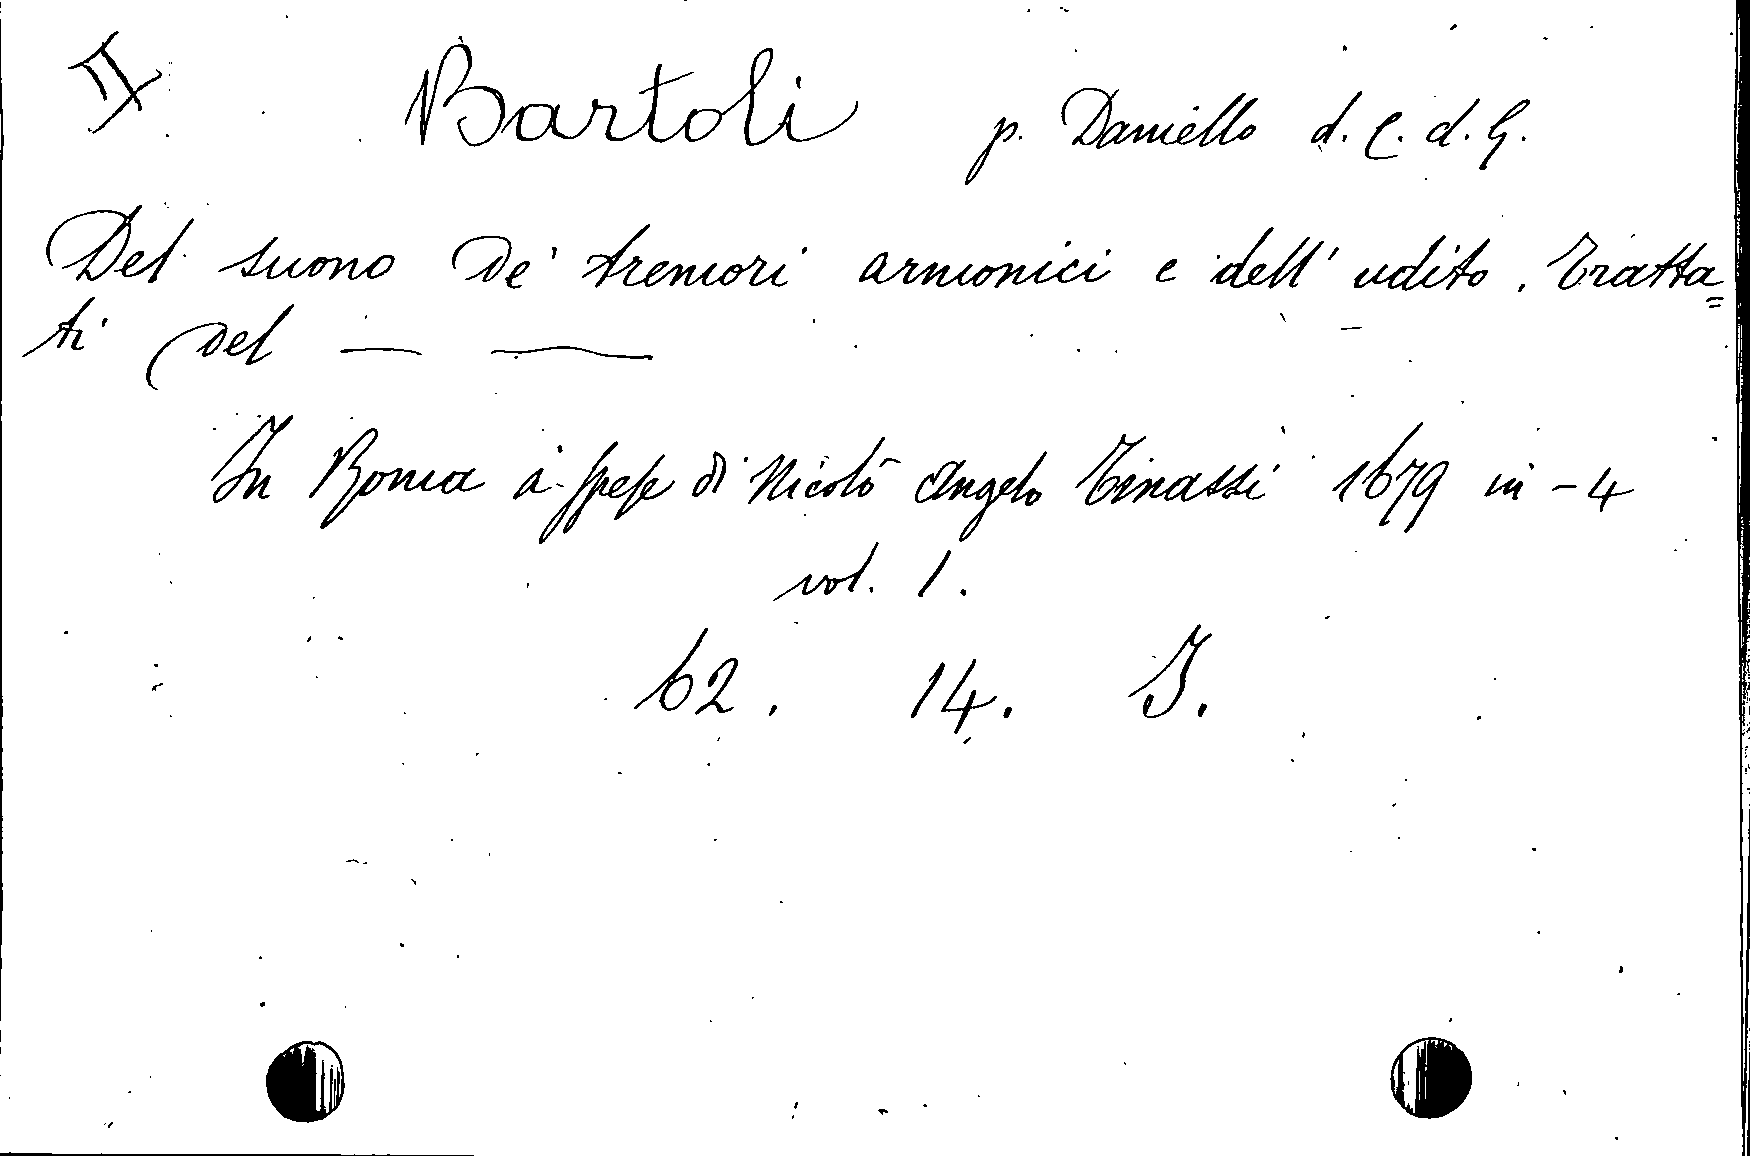 II
Bartoli p. Daniello d. C. d. G.
Del suono de' tremori armonici e dell' udito. Tratta=
ti del — —
In Roma a spese di Nicolò Angelo Tinassi 1679 in - 4
vol. 1.
62. 14. I.